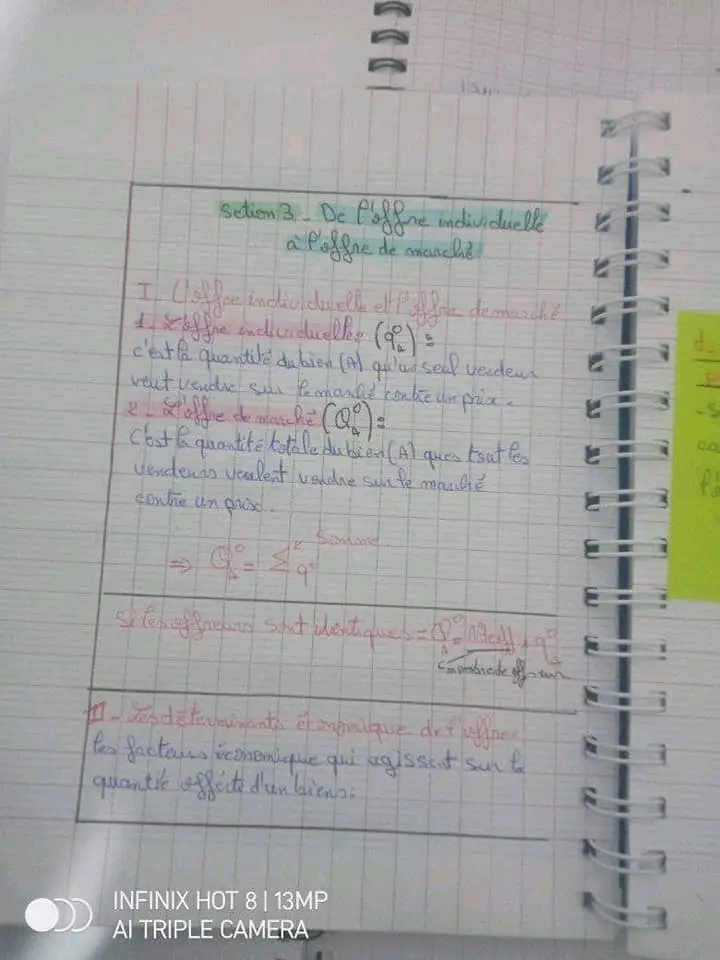 Setion 3 - De l'offre individuelle
à l'offre de marché
I. L'offre individuelle et l'offre de marché
1. L'offre individuelle (q°A) =
c'est la quantité du bien (A) qu'un seul vendeur
veut vendre sur le marché contre un prix.
2 - L'offre de marché (Q°A) =
C'est la quantité totale du bien (A) ques tout les
vendeurs veulent vendre sur le marché
contre un prix.
⇒ Q°A = Σ q°
si les offreurs sont identiques = Q°A = q°
nombre
II - Les déterminants économique de l'offre
les facteurs économique qui agissent sur la
quantité d'un biens.
INFINIX HOT 8 | 13MP
AI TRIPLE CAMERA